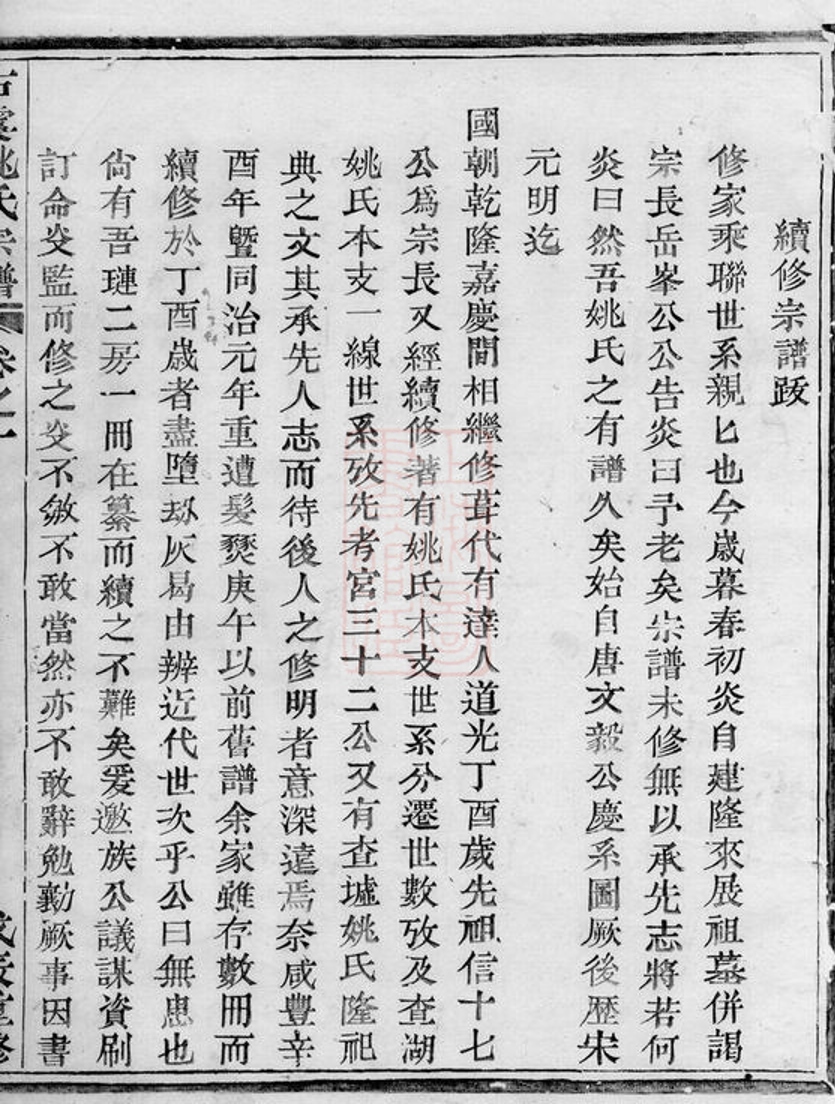 續修宗譜跋
修家乘聯世系親匕也今歲暮春初炎自建隆來展祖墓併謁
宗長岳峯公公告炎曰予老矣宗譜未修無以承先志將若何
炎曰然吾姚氏之有譜久矣始自唐文毅公慶系圖厥後歷宋
元明迄
國朝乾隆嘉慶間相繼修葺代有達人道光丁酉歲先祖信十七
公爲宗長又經續修著有姚氏本支世系分遷世數攷及查湖
姚氏本支一線世系攷先考宮三十二公又有查墟姚氏隆祀
典之文其承先人志而待後人之修明者意深遠焉奈咸豐辛
酉年曁同治元年重遭髮燹庚午以前舊譜余家雖存數冊而
續修於丁酉歲者盡墮劫灰曷由辨近代世次乎公曰無患也
尙有吾璉二房一冊在纂而續之不難矣爰邀族公議謀資刷
訂命炎監而修之炎不敏不敢當然亦不敢辭勉勷厥事因書
姚氏宗譜 卷之一